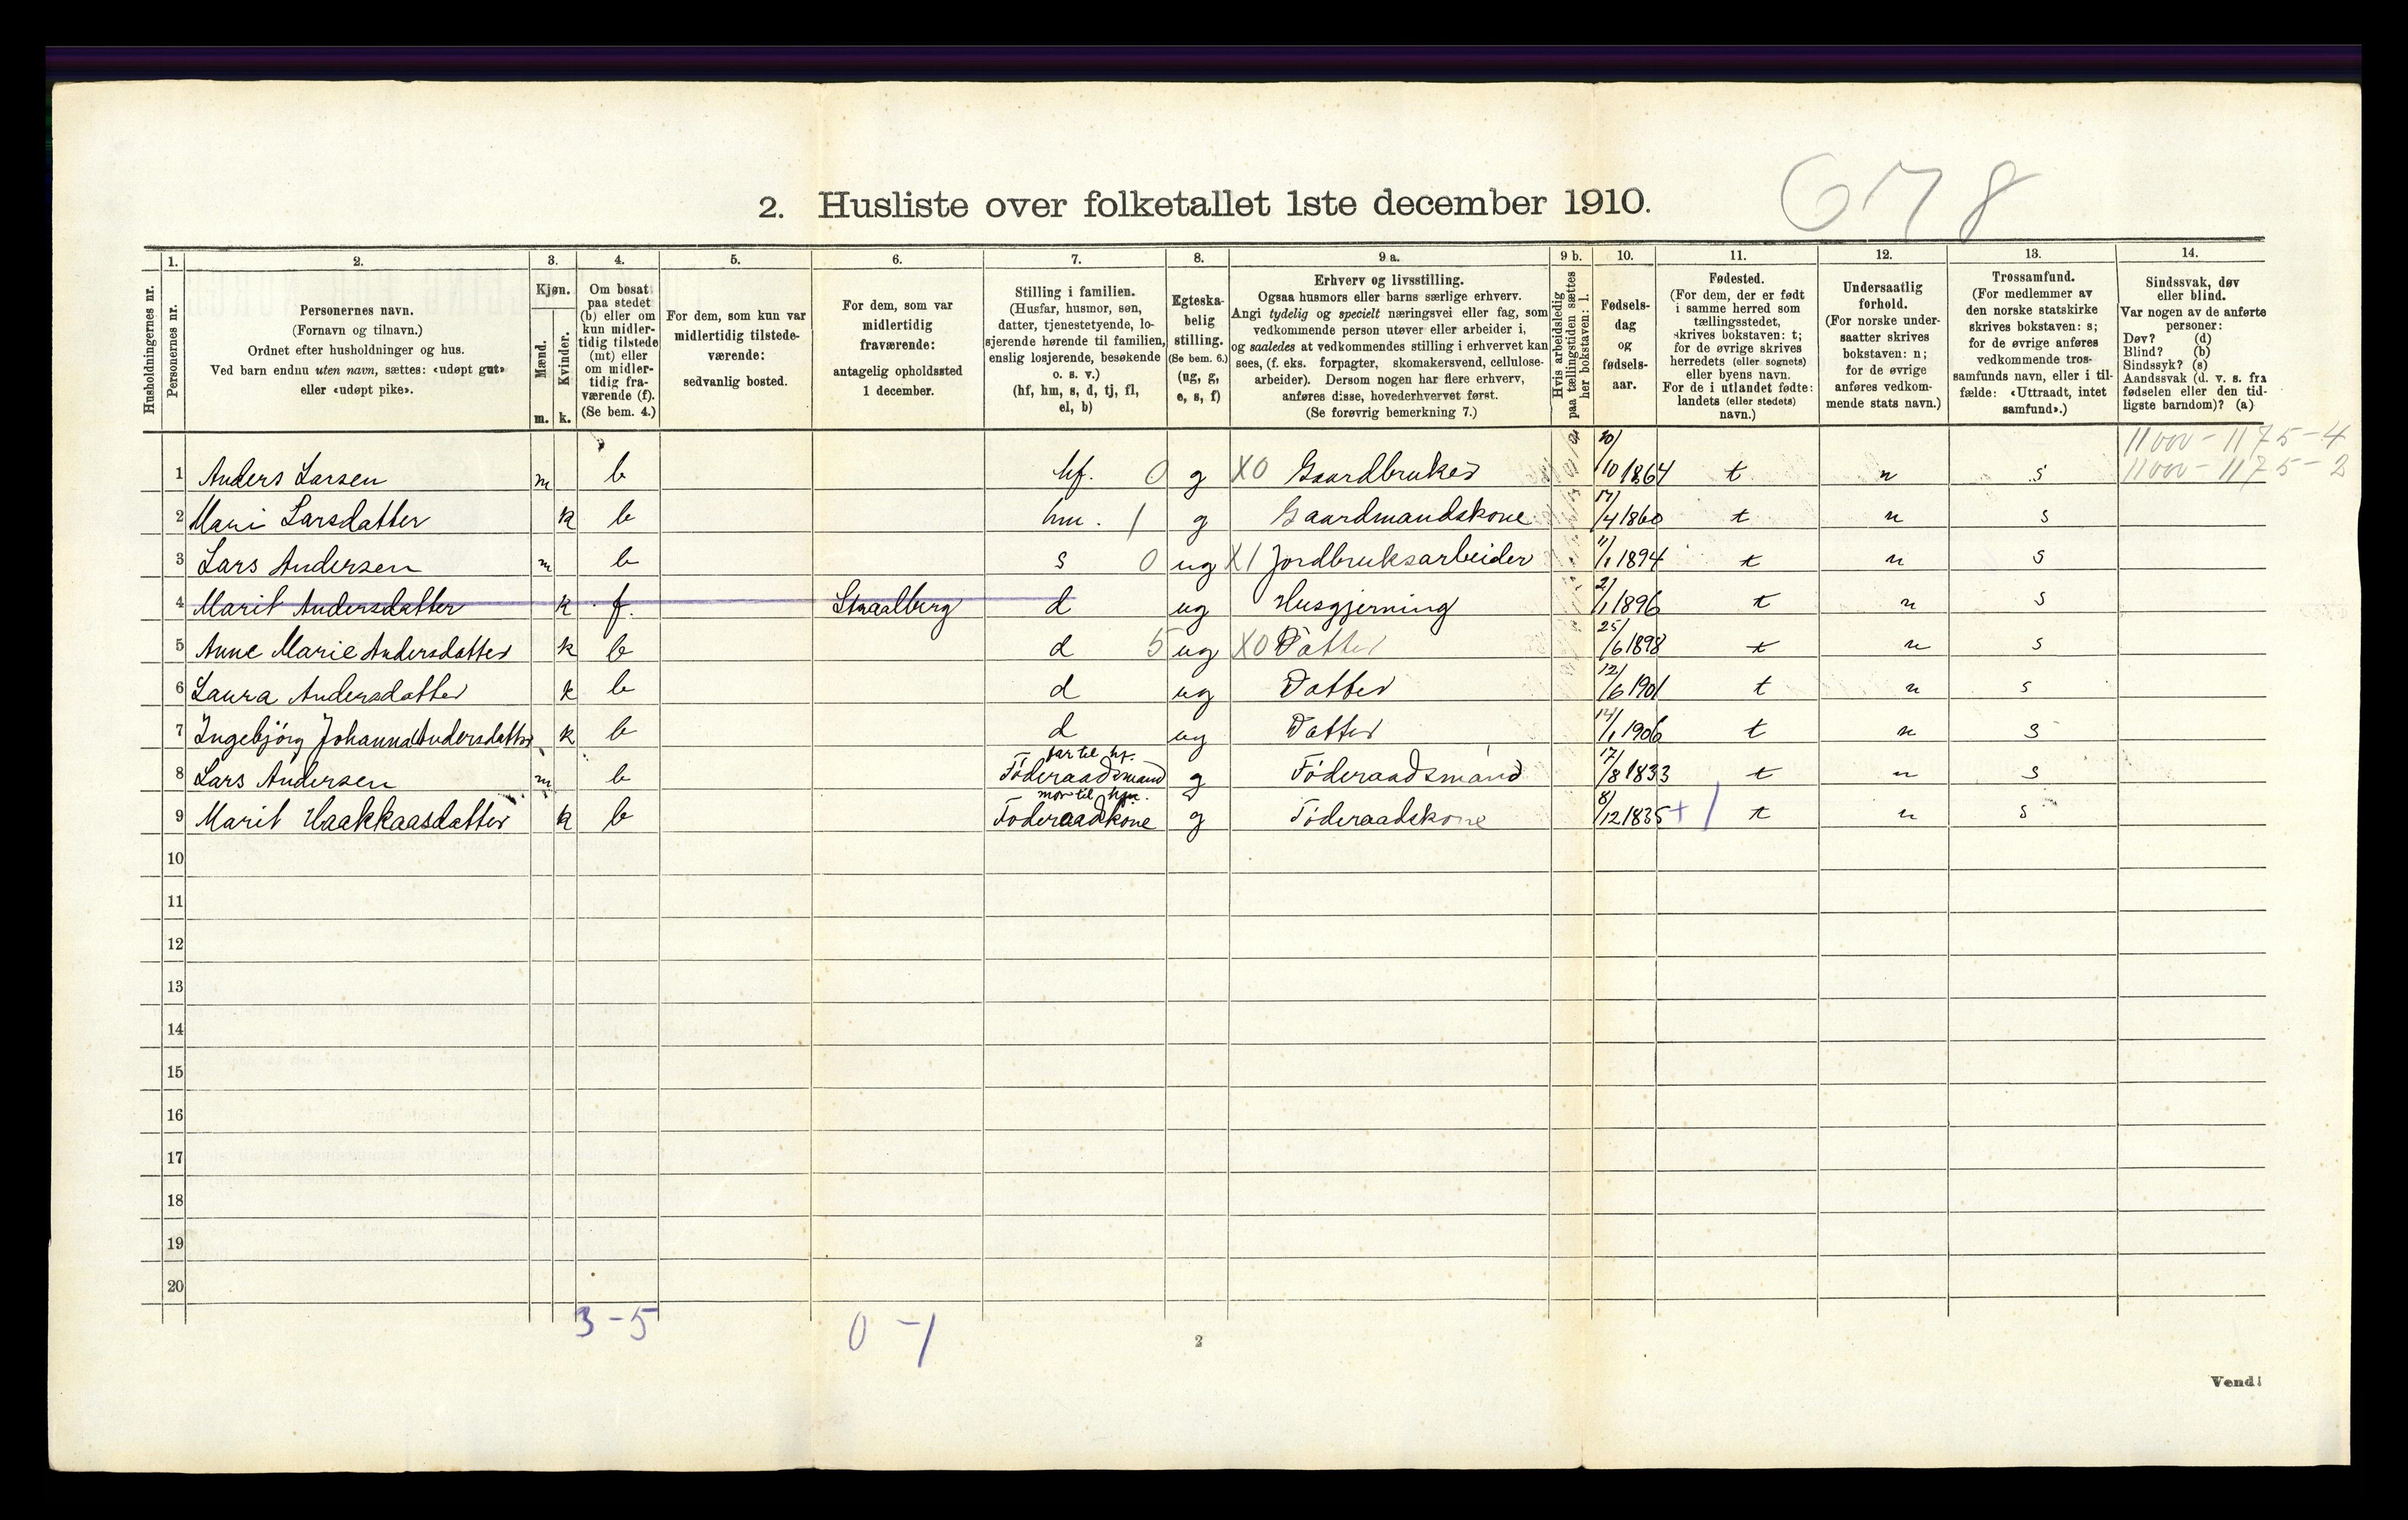 678
2. Husliste over folketallet 1ste december 1910.
Husholdningernes nr.
1.
Personernes nr.
2.
Personernes navn.
(Fornavn og tilnavn.)
Ordnet efter husholdninger og hus.
Ved barn endnu uten navn, sættes: «udøpt gut»
eller «udøpt pike».
3.
Kjøn.
Mænd.
m.
Kvinder.
k.
4.
Om bosat
paa stedet
(b) eller om
kun midler-
tidig tilstede
(mt) eller
om midler-
tidig fra-
værende (f).
(Se bem. 4.)
5.
For dem, som kun var
midlertidig tilstede-
værende:
sedvanlig bosted.
6.
For dem, som var
midlertidig
fraværende:
antagelig opholdssted
1 december.
7.
Stilling i familien.
(Husfar, husmor, søn,
datter, tjenestetyende, lo-
sjerende hørende til familien,
enslig losjerende, besøkende
o. s. v.)
(hf, hm, s, d, tj, fl,
el, b)
8.
Egteska-
belig
stilling.
(Se bem. 6.)
(ug, g,
e, s, f)
9 a.
Erhverv og livsstilling.
Ogsaa husmors eller barns særlige erhverv.
Angi tydelig og specielt næringsvei eller fag, som
vedkommende person utøver eller arbeider i,
og saaledes at vedkommendes stilling i erhvervet kan
sees, (f. eks. forpagter, skomakersvend, cellulose-
arbeider). Dersom nogen har flere erhverv,
anføres disse, hovederhvervet først.
(Se forøvrig bemerkning 7.)
9 b.
Hvis arbeidsledig
paa tællingstiden sættes
her bokstaven: l.
10.
Fødsels-
dag
og
fødsels-
aar.
11.
Fødested.
(For dem, der er født
i samme herred som
tællingsstedet,
skrives bokstaven: t;
for de øvrige skrives
herredets (eller sognets)
eller byens navn.
For de i utlandet fødte:
landets (eller stedets)
navn.)
12.
Undersaatlig
forhold.
(For norske under-
saatter skrives
bokstaven: n;
for de øvrige
anføres vedkom-
mende stats navn.)
13.
Trossamfund.
(For medlemmer av
den norske statskirke
skrives bokstaven: s;
for de øvrige anføres
vedkommende tros-
samfunds navn, eller i til-
fælde: «Uttraadt, intet
samfund».)
14.
Sindssvak, døv
eller blind.
Var nogen av de anførte
personer:
Døv? (d)
Blind? (b)
Sindssyk? (s)
Aandssvak (d. v. s. fra
fødselen eller den tid-
ligste barndom)? (a)
11000-1175-4
1 Anders Larsen m b hf. 0 g X0 Gaardbruker 20/10 1864 t n s 11000-1175-2
2 Mari Larsdatter k b hm. 1 g Gaardmandskone 17/4 1860 t n s
3 Lars Andersen m b s 0 ug X1 Jordbruksarbeider 11/1 1894 t n s
4 Marit Andersdatter k f. Straalberg d ug Husgjerning 2/1 1896 t n s
5 Anne Marie Andersdatter k b d 5 ug X0 Datter 25/6 1898 t n s
6 Laura Andersdatter k b d ug Datter 12/6 1901 t n s
7 Ingebjörg Johanna Andersdatter k b d ug Datter 14/1 1906 t n s
far til hf.
8 Lars Andersen m b Föderaadsmand g Föderaadsmand 17/8 1833 t n s
mor til hf.
9 Marit Haakkaasdatter k b Föderaadkone g Föderaadskone 8/12 1835 + 1 t n s
10
11
12
13
14
15
16
17
18
19
20
3-5
0-1
2
Vend!